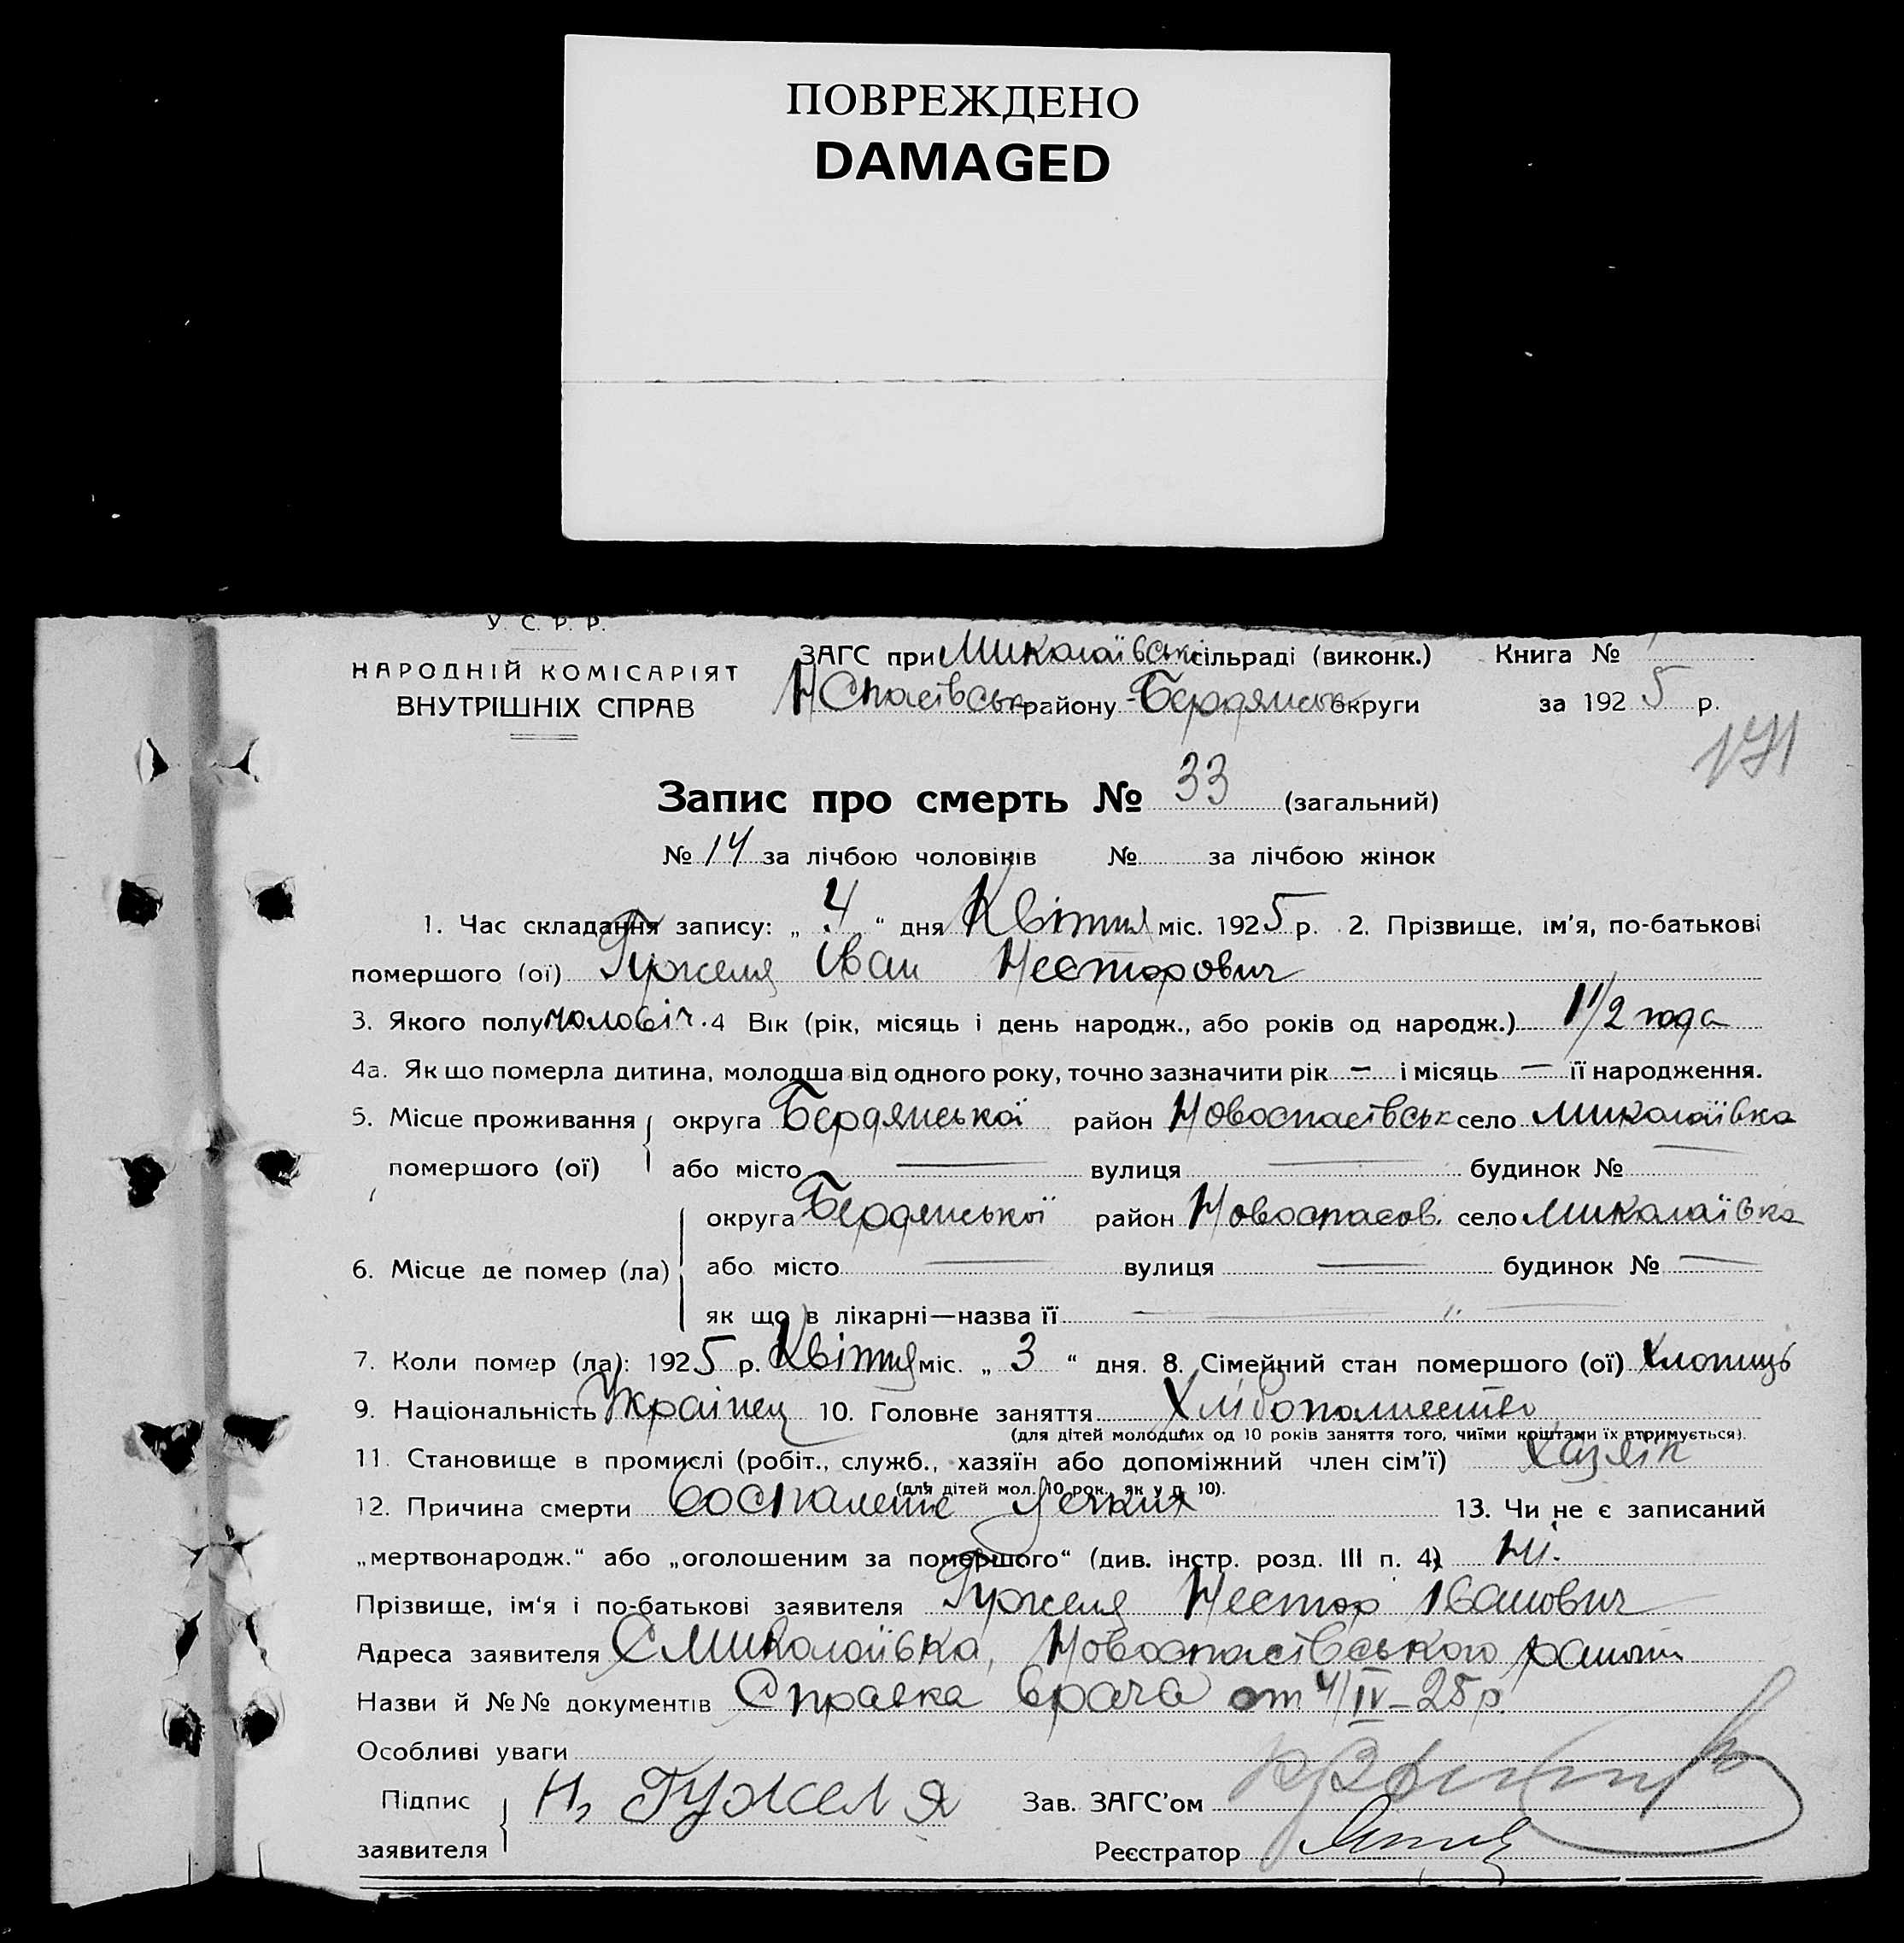 ПОВРЕЖДЕНО
DAMAGED
У. С. Р. Р.
НАРОДНІЙ КОМІСАРІЯТ
ВНУТРІШНІХ СПРАВ
ЗАГС при Миколаївськ сільраді (виконк.) Книга №
Н Спасівськ району Бердянськ округи за 1925 р.
171
Запис про смерть № 33 (загальний)
№ 14 за лічбою чоловіків № за лічбою жінок
1. Час складання запису: „ 4 “ дня Квітня міс. 1925 р. 2. Прізвище, ім'я, по-батькові
помершого (ої) Гужеля Іван Несторович
3. Якого полу чоловіч. 4 Вік (рік, місяць і день народж., або років од народж.) 1 1/2 года
4а. Як що померла дитина, молодша від одного року, точно зазначити рік — і місяць — її народження.
5. Місце проживання округа Бердянської район Новоспасівськ село Миколаївка
помершого (ої) або місто — вулиця — будинок № —
округа Бердянської район Новоспасов. село Миколаївка
6. Місце де помер (ла) або місто — вулиця — будинок № —
як що в лікарні—назва її — „ —
7. Коли помер (ла): 1925 р. Квітня міс. „ 3 “ дня. 8. Сімейний стан помершого (ої) хлопиць
9. Національність Українец 10. Головне заняття Хлібопашество
(для дітей молодших од 10 років заняття того, чиїми коштами їх втримується).
11. Становище в промислі (робіт., служб., хазяїн або допоміжний член сім'ї) Хазяін
(для дітей мол. 10 рок., як у п. 10).
12. Причина смерти воспаление легких 13. Чи не є записаний
„мертвонародж.“ або „оголошеним за помершого“ (див. інстр. розд. III п. 4) Ні.
Прізвище, ім'я і по-батькові заявителя Гужеля Нестор Іванович
Адреса заявителя С Миколаївка, Новоспасівського району
Назви й №№ документів Справка врача от 4/IV–25 р.
Особливі уваги
Підпис
заявителя Н, Гужеля
Зав. ЗАГС'ом
Реєстратор